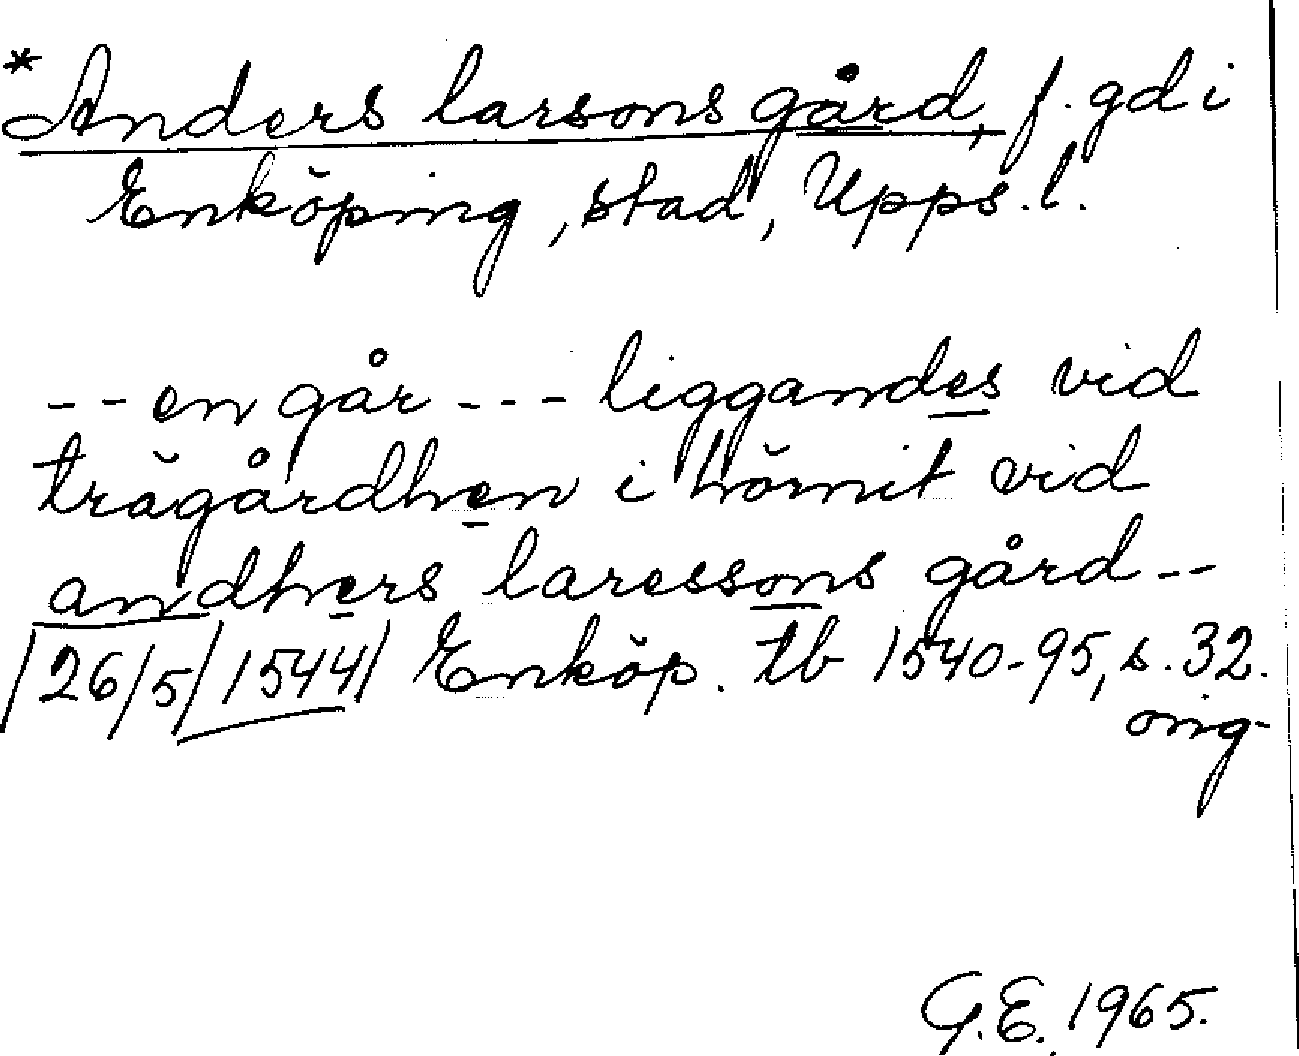 *Anders larsons gård, f. gd i
Enköping, stad, Upps. l.
-- en går --- liggandes vid
trägårdhen i hörnit vid
andhers laressons gård --
/26/5/1544/ Enköp. tb 1540-95, s. 32.
orig.
G.E. 1965.